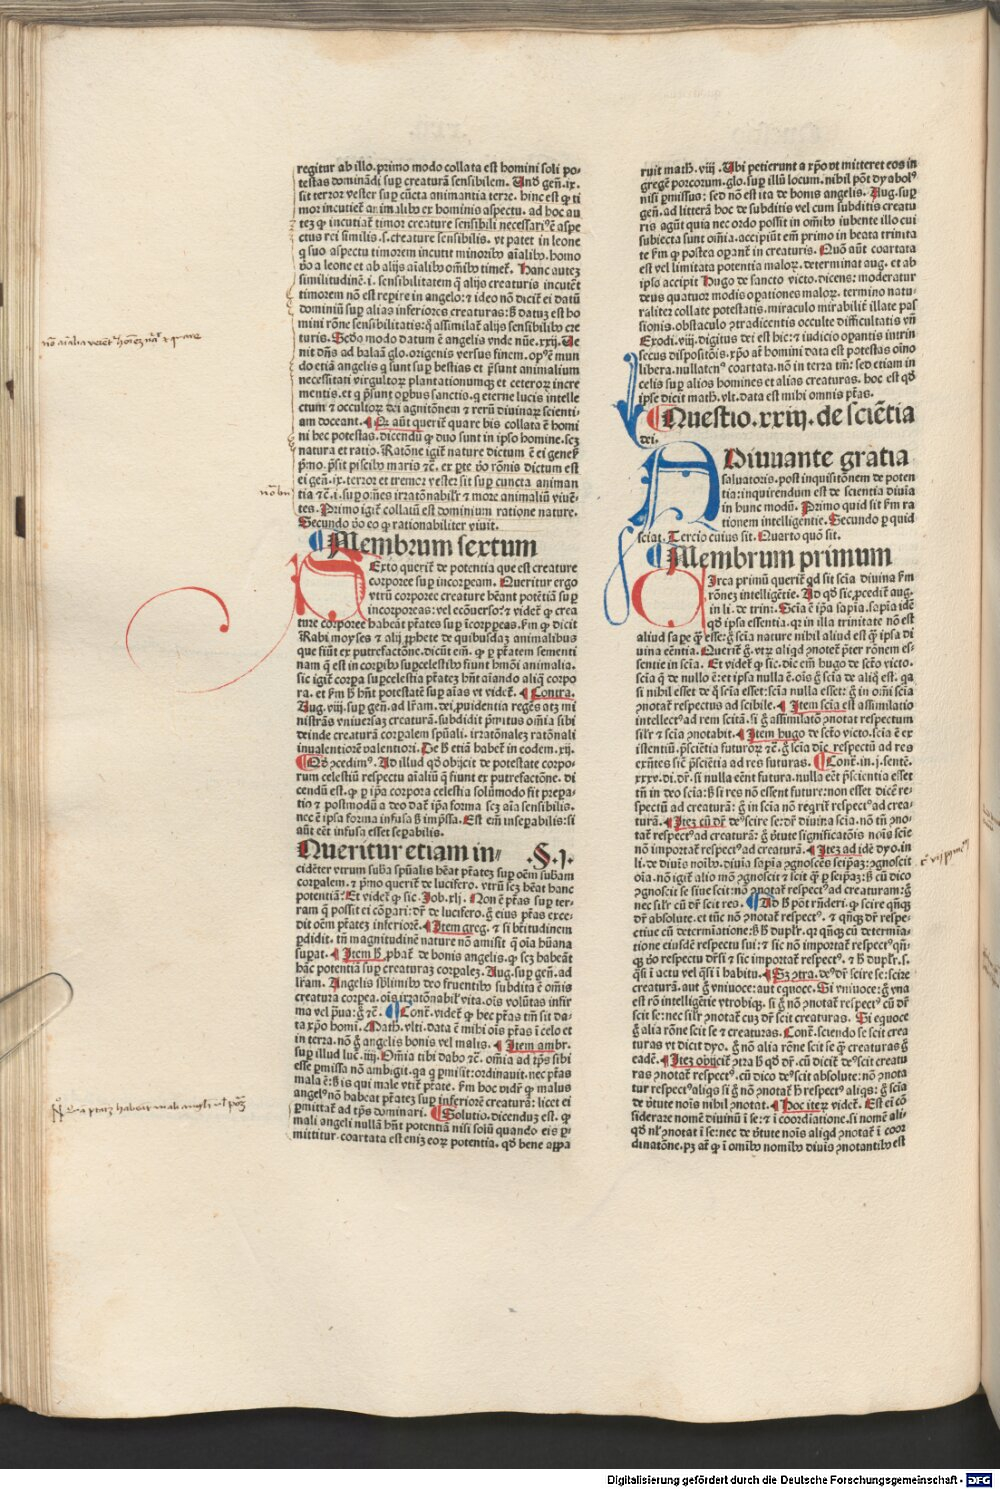 regitur ab illo. primo modo collata est homini soli po-
testas dominādi suꝑ creaturā sensibilem. Vnď geñ.ix.
sit terror vester suꝑ cūcta animantia terre. hinc est ꝙ ti
mor incutiet̃ animalibꝰ ex hominis aspectu. ad hoc au
tez ꝙ incutiat̃ timor creature sensibili necessariũ ẽ aspe
ctus rei similis .s. creature sensibilis. vt patet in leone
q̇ suo aspectu timorem incutit minoribꝰ aĩalibꝰ. homo
ꝟo a leone et ab alijs aĩalibꝰ om̃ibꝰ timet̃. Hanc autez
similitudinẽ .i. sensibilitatem q̃ alijs creaturis incutẽt
timorem nō est reꝑire in angelo: ⁊ ideo nō dicit̃ ei datũ
dominiũ suꝑ alias inferiores creaturas: ß datuȝ est ho
mini rōne sensibilitatis: q̃ assimilat̃ alijs sensibilibꝰ cre
turis. Scďo modo datum ẽ angelis vnde nūe.xxij. Ve
nit dñs ad balaā glo. origenis versus finem. opꝰ ẽ mun
do etiā angelis q̇ sunt suꝑ bestias et p̃sunt animalium
necessitati virgultoꝝ plantationumqꝫ et ceteroꝝ incre
mentis. et q̇ p̃sunt oꝑbus sanctis. q̇ eterne lucis intelle
ctum ⁊ occultoꝝ dei agnitōnem ⁊ rerũ diuinaꝝ scienti-
am doceant. ¶ Qꝫ aũt querit̃ quare his collata ẽ homi
ni hec potestas. dicendũ ꝙ duo sunt in ipso homine. scȝ
natura et ratio. Ratōne igit̃ nature dictum ẽ ei geneꝭ
p̃mo. p̃sit piscibꝰ maris ⁊c̃. ex ꝑte ꝟo rōnis dictum est
ei geñ.ix. terror et tremor vester sit suꝑ cuncta animan
tia ⁊c̃ .i. suꝑ om̃es irratōnabilr̃ ⁊ more animaliũ viuē-
tes. Primo igit̃ collatũ est dominium ratione nature.
Secundo ꝟo eo ꝙ rationabiliter viuit.
¶ Membrum sextum
SExto querit̃ de potentia que est creature
corporee suꝑ incorꝑeam. Queritur ergo
vtrũ corporee creature hēant potētiā suꝑ
incorporeas: vel ecōuerso: ⁊ videt̃ ꝙ crea
ture corporee habeāt p̃tates suꝑ ĩcorꝑeas. ẜm ꝙ dicit
Rabi moyses ⁊ alij ꝓphete de quibusdaȝ animalibus
que fiũt ex putrefactōne. dicũt em̃. ꝙ ꝑ p̃tatem sementi
nam q̃ est in corꝑibꝰ suꝑcelestibꝰ fiunt hm̃oi animalia.
sic igit̃ corꝑa suꝑcelestia p̃tatez hñt aĩando aliq̃ corpo
ra. et ẜm ß hñt potestatē suꝑ aĩas vt videt̃. ¶ Contra.
Aug. viij. suꝑ geñ. ad lr̃am. dei ꝓuidentia regēs atȝ mi
nistrās vniuersaȝ creaturā. subdidit p̃mitus om̃ia sibi
deinde creaturā corꝑalem sp̃uali. irratōnalez ratōnali
inualentiorē valentiori. De ß etiā habet̃ in eodem. xij.
¶ Qď ꝯcedimꝰ. Ad illud qď obijcit de potestate corpo-
rum celestiũ respectu aĩaliũ q̃ fiunt ex putrefactōne. di
cendũ est. ꝙ ꝑ ip̃a corpora celestia solũmodo fit p̃epa-
tio ⁊ postmodũ a deo dat̃ ip̃a forma scȝ aĩa sensibilis.
nec ẽ ipsa forma infusa ß imp̃ssa. Est em̃ insepabilis: si
aũt eēt infusa esset sepabilis.
Queritur etiam in⸗ .§.j.
cidēter vtrum suba sp̃ualis hēat p̃tatez suꝑ oēm subam
corꝑalem. ⁊ p̃mo querit̃ de lucifero. vtrũ scȝ hēat hanc
potentiā: Et videt̃ ꝙ sic. Job. xlj. Non ẽ p̃tas suꝑ ter-
ram q̃ possit ei cōꝑari: dr̃ de lucifero. g̊ eius p̃tas exce-
dit oēm p̃tatez inferiorē. ¶ Item greg. ⁊ si bt̃itudinem
ꝑdidit. tñ magnitudinē nature nō amisit q̃ oĩa hũana
suꝑat. ¶ Item ß ꝓbat̃ de bonis angelis. ꝙ scȝ habeāt
hāc potentiā suꝑ creaturaȝ corꝑalez. Aug. suꝑ geñ. ad
lr̃am. Angelis sblimibꝰ deo fruentibꝰ subdita ẽ om̃is
creatura corꝑea. oĩs irratōnabil̃ vita. oĩs volũtas infir
ma vel p̃ua: g̊ ⁊c̃. ¶ Cont̃. videt̃ ꝙ hec p̃tas tm̃ sit da-
ta xp̃o homi. Math. vlti. data ẽ mihi oĩs p̃tas ĩ celo et
in terra. nō g̊ angelis bonis vel malis. ¶ Item ambr.
suꝑ illud luc̃. iiij. Om̃ia tibi dabo ⁊c̃. om̃ia ad tp̃s sibi
esse ꝑmissa nō ambigit. qꝛ q̃ ꝑmisit: ordinauit. nec p̃tas
mala ẽ: ß is qui male vtit̃ p̃tate. ẜm hoc vidr̃ ꝙ malus
angelꝰ nō habeat p̃tatez suꝑ inferiorē creaturā: licet ei
ꝑmittat̃ ad tp̃s dominari. ¶ Solutio. dicenduȝ est. ꝙ
mali angeli nullā hñt potentiā nisi solũ quando eis ꝑ-
mittitur. coartata est eniȝ eoꝝ potentia. qď bene aꝑpa
ruit math̃. viij. Vbi petierunt a xp̃o vt mitteret eos in
gregē porcorum. glo. suꝑ illũ locum. nihil pōt dyabolꝰ
nisi ꝑmissus: sed nō est ita de bonis angelis. Aug. suꝑ
geñ. ad litterā hoc de subditis vel cum subditis creatu
ris agũt quia nec ordo possit in om̃ibꝰ iubente illo cui
subiecta sunt om̃ia. accipiũt em̃ primo in beata trinita
te ẜm ꝙ postea oꝑant̃ in creaturis. Quō aũt coartata
est vel limitata potentia maloꝝ. determinat aug. et ab
ipso accipit Hugo de sancto victo. dicens: moderatur
deus quatuor modis oꝑationes maloꝝ. termino natu-
ralitez collate potestatis. miraculo mirabilit̃ illate pas
sionis. obstaculo ꝯtradicentis occulte difficultatis vñ
Exodi. viij. digitus dei est hic: ⁊ iudicio oꝑantis intrin
secus dispositōis. xp̃o at̃ homini data est potestas oĩno
libera. nullatenꝰ coartata. nō in terra tm̃: sed etiam in
celis suꝑ alios homines et alias creaturas. hoc est qď
ipse dicit math̃. vlt. data est mihi omnis p̃tas.
¶ Questio. xxiij. de sciētia
dei.
ADiuuante gratia
saluatoris. post inquisitōnem de poten
tia: inquirendum est de scientia diuĩa
in hunc modũ. Primo quid sit ẜm ra
tionem intelligentie. Secundo ꝑ quid
sciat. Tercio cuius sit. Quarto quō sit.
¶ Membrum primum
CIrca primũ querit̃ qď sit scĩa diuina ẜm
rōnez intelligētie. Ad qď sic ꝓcedit̃ aug.
in li. de trin: Scĩa ẽ ip̃a sapĩa. sapĩa idē
qď ipsa essentia. qꝛ in illa trinitate nō est
aliud saꝑe ꝙ̃ esse: g̊ scĩa nature nihil aliud est ꝙ̃ ipsa di
uina eēntia. Querit̃ g̊. vtꝝ aliqď ꝯnotet̃ p̃ter rōnem es-
sentie in scĩa. Et videt̃ ꝙ sic. dic em̃ hugo de scto victo.
scĩa q̃ de nullo ẽ: et ipsa nulla ẽ. oĩs g̊ scĩa de aliq̊ est. qꝛ
si nihil esset de q̊ scĩa esset: scĩa nulla esset: g̊ in om̃i scĩa
ꝯnotat̃ respectus ad scibile. ¶ Item scĩa est assimilatio
intellectꝰ ad rem scitā. si g̊ assimilatō ꝯnotat respectum
silr̃ ⁊ scĩa ꝯnotabit. ¶ Item hugo de scto victo. scĩa ẽ ex
istentiũ. p̃sciētia futuroꝝ ⁊c̃. g̊ scĩa dic̃ respectũ ad res
exñtes sic̃ p̃sciētia ad res futuras. ¶ Cont̃. in .j. sentē.
xxxv. di. dr̃. si nulla eēnt futura. nulla eēt p̃scientia esset
tñ in deo scĩa: ß si res nō essent future: non esset dicē re-
spectũ ad creaturā: g̊ in scĩa nō reqrit̃ respectꝰ ad crea-
turā. ¶ Itez cũ dr̃ deꝰ scire se: dr̃ diuina scĩa. nō tñ ꝯno-
tat̃ respectꝰ ad creaturā: g̊ ꝟtute significatōis nois scĩe
nō importat̃ respectꝰ ad creaturā. ¶ Itez ad idē dyo. in
li. de diuīs noĩbꝰ. diuĩa sapĩa ꝯgnoscēs seip̃aȝ: ꝯgnoscit
oĩa. nō igit̃ alio mō ꝯgnoscit ⁊ scit q̃ ꝑ seip̃aȝ: ß cũ dico
ꝯgnoscit se siue scit: nō ꝯnotat̃ respectꝰ ad creaturam: g̊
nec silr̃ cũ dr̃ scit res. ¶ Ad ß pōt rñderi. ꝙ scire qñqꝫ
dr̃ absolute. et tũc nō ꝯnotat̃ respectꝰ. ⁊ qñqꝫ dr̃ respe-
ctiue cũ determiatione: ß ß duplr̃. qꝛ qñqꝫ cũ determia-
tione eiusdē respectu sui: ⁊ sic nō importat̃ respectꝰ qñ-
qꝫ ꝟo respectu dr̃si ⁊ sic importat̃ respectꝰ. ⁊ ß duplr̃. s.
q̃si ĩ actu vel q̃si ĩ habitu. ¶ Sȝ ꝯtra. deꝰ dr̃ scire se: scire
creaturā. aut g̊ vniuoce: aut equoce. Si vniuoce: g̊ vna
est rō intelligētie vtrobiqꝫ. si g̊ nō ꝯnotat̃ respectꝰ cũ dr̃
scit se: nec silr̃ ꝯnotat̃ cuȝ dr̃ scit creaturas. Si equoce
g̊ alia rōne scit se ⁊ creaturas. Cont̃. sciendo se scit crea
turas vt dicit dyo. g̊ nō alia rōne scit se ꝙ̃ creaturas g̊
eadē. ¶ Itez obijcit̃ ꝯtra ß qď dr̃. cũ dicit̃ deꝰ scit creatu
ras ꝯnotat̃ respectꝰ. cũ dico deꝰ scit absolute: nō ꝯnota
tur respectꝰ aliqs si g̊ nō ꝯnotat̃ ß respectꝰ aliqs: g̊ scĩa
de ꝟtute noĩs nihil ꝯnotat. ¶ Hoc iteꝝ videt̃. Est ei cō
siderare nomē diuinũ ĩ se: ⁊ ĩ coordiatione. si nomē ali-
qď nl̃ ꝯnotat ĩ se: nec de ꝟtute noĩs aliqď ꝯnotat̃ ĩ coor
dinatōne. pȝ at̃ ꝙ ĩ om̃ibꝰ nomĩbꝰ diuīs ꝯnotantibꝰ est
Digitalisierung gefördert durch die Deutsche Forschungsgemeinschaft - DFG